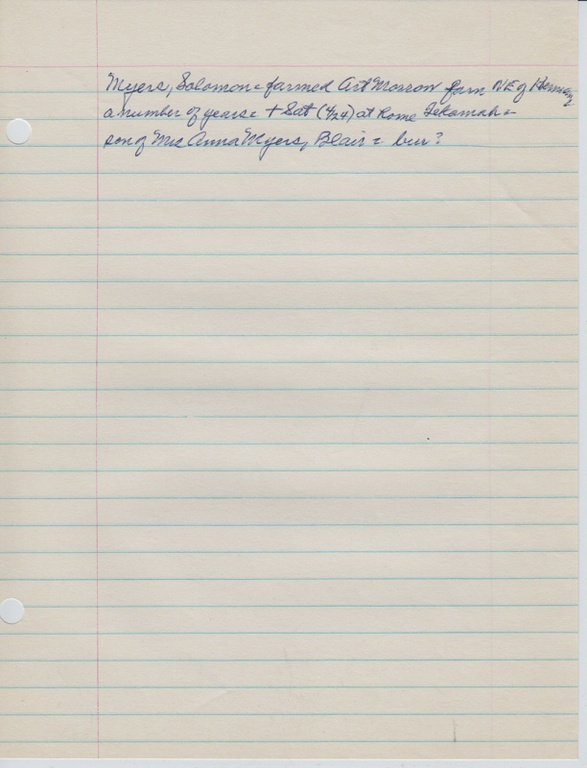 Myers, Solomon - farmed Art Morrow farm NE of Herman
a number of years - + Sat (4/24) at home Tekamah -
son of Mrs Anna Myers, Blair - bur?